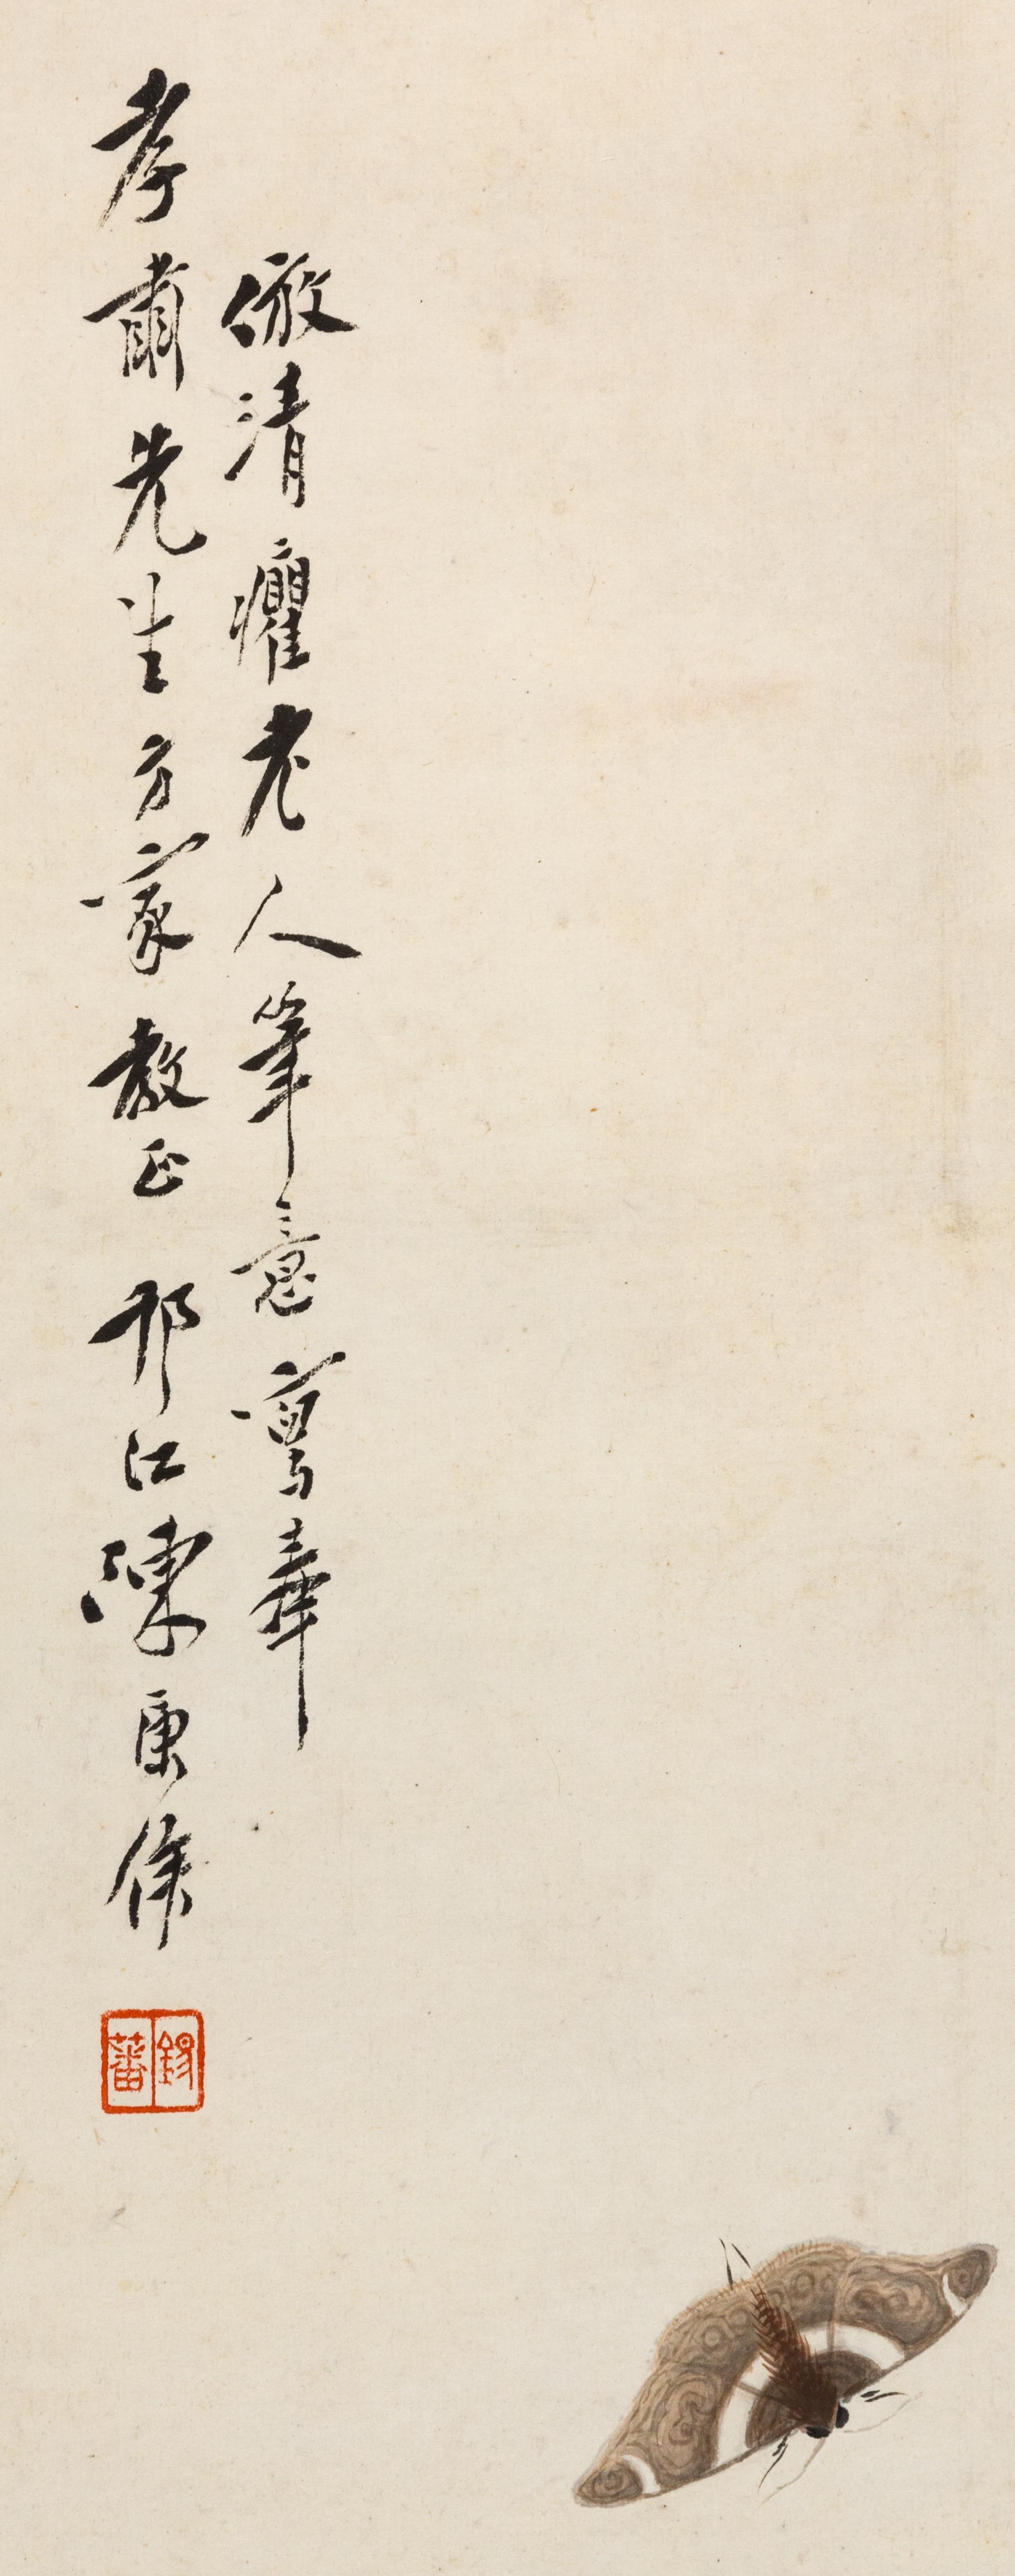 倣清癯老人筆意寫奉
孝肅先生方家教正 邗江陳康侯
錫蕃